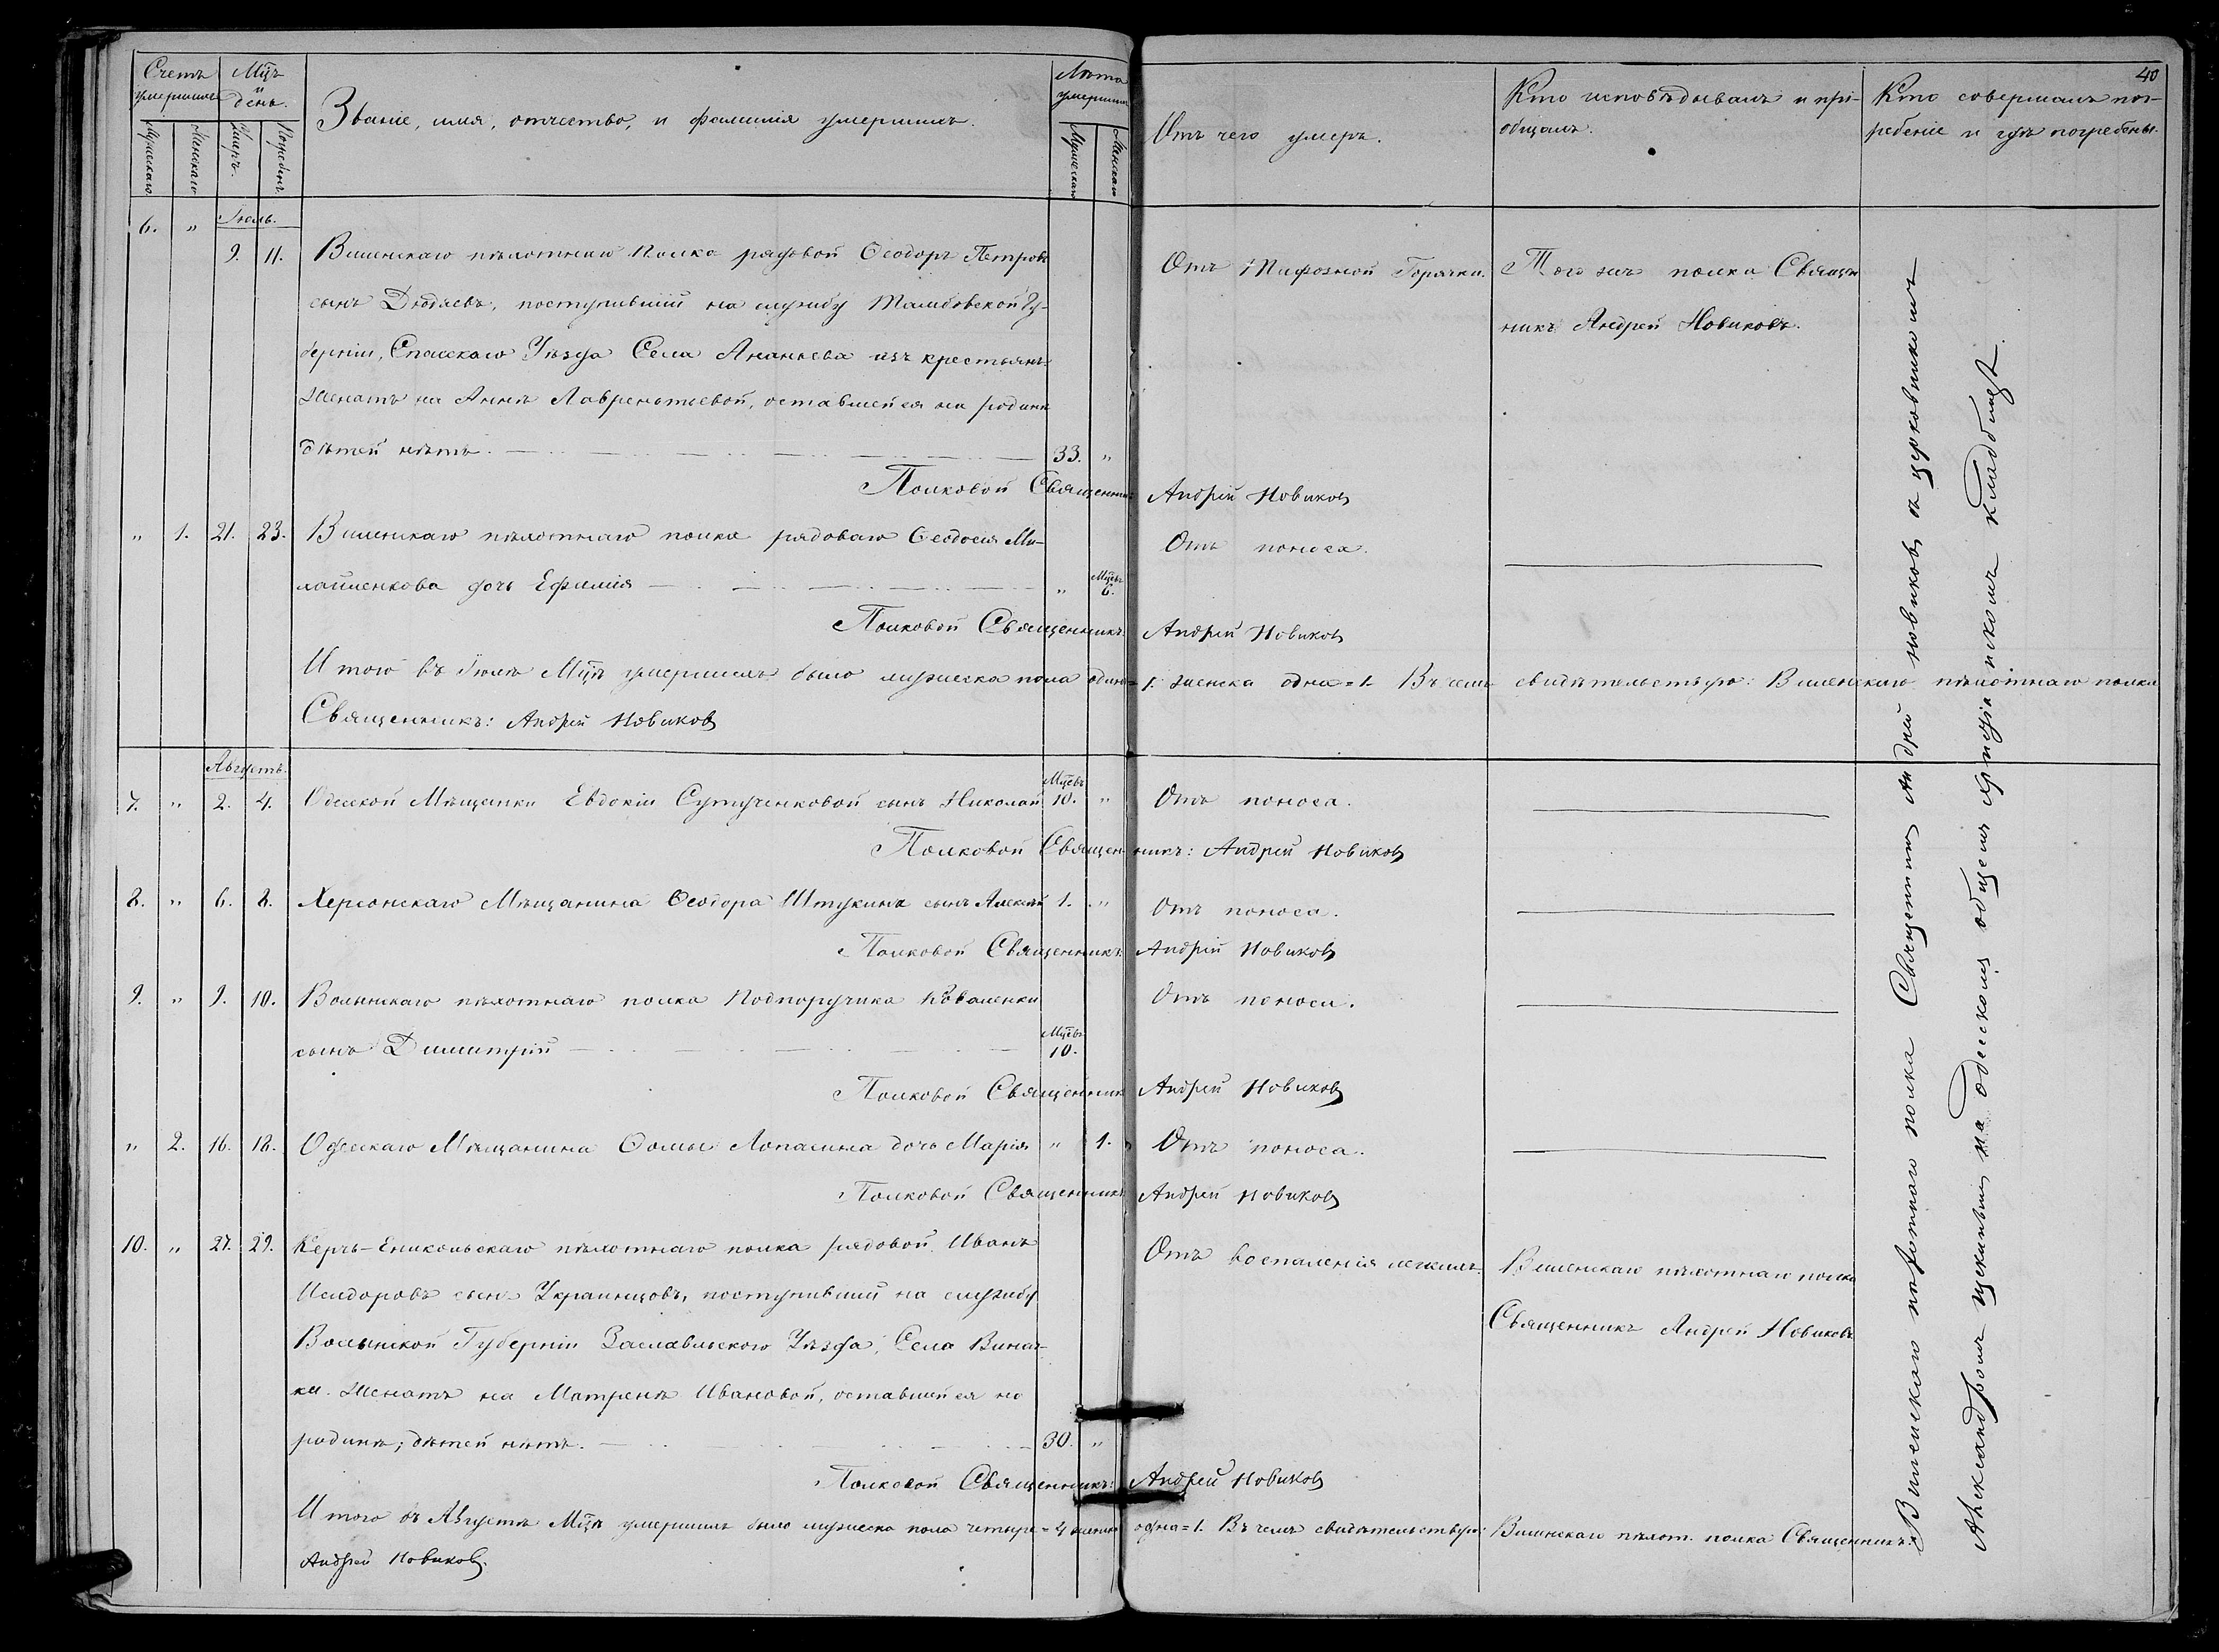 40
Счетъ умершихъ
Мцъ и день.
Званіе, имя, отчество, и фамилія умершихъ.
Лѣта умершихъ
Отъ чего умеръ.
Кто исповѣдывалъ и прі-
общалъ.
Кто совершалъ пог-
ребеніе и гдѣ погребены.
Мужескаго
Женскаго
Умеръ.
Погребенъ.
Мужескаго
Женскаго
Іюль.
6. " 9. 11. Виленскаго пѣхотнаго Полка рядовой Ѳеодоръ Петровъ
сынъ Дюдяевъ, поступившій на службу Тамбовской Гу-
берніи, Спасскаго Уѣзда Села Ананьева изъ крестьянъ.
Женатъ на Аннѣ Лаврентьевой, оставшейся на родинѣ
дѣтей нѣтъ. 33. "
Отъ Тифозной Горячки.
Того же полка Священ
никъ Андрей Новиковъ.
Полковой Священникъ: Андрей Новиковъ
" 1. 21. 23. Виленскаго пѣхотнаго полка рядоваго Ѳеодосія Ми-
хайленкова дочь Ефимія " Мцвъ 6.
Отъ поноса.
Полковой Священникъ: Андрей Новиковъ
И того въ Іюлѣ Мцѣ умершихъ было мужеска пола одинъ=1. женска одна=1. Въ чемъ свидѣтельствую: Виленскаго пѣхотнаго полка
Священникъ: Андрей Новиковъ
Августъ.
7. " 2. 4. Одесской Мѣщанки Евдокіи Сутученковой сынъ Николай Мцвъ 10. " Отъ поноса.
Полковой Священникъ: Андрей Новиковъ
8. " 6. 8. Херсонскаго Мѣщанина Ѳеодора Штукина сынъ Алексѣй 1. " Отъ поноса.
Полковой Священникъ: Андрей Новиковъ
9. " 9. 10. Волынскаго пѣхотнаго полка Подпоручика Коваленки
сынъ Димитрій Мцвъ 10.
Отъ поноса.
Полковой Священникъ Андрей Новиковъ
" 2. 16. 18. Одесскаго Мѣщанина Ѳомы Лопасина дочь Марія " 1. Отъ поноса.
Полковой Священникъ Андрей Новиковъ
10. " 27. 29. Керчь-Еникольскаго пѣхотнаго полка рядовой Иванъ
Исидоровъ сынъ Украинцовъ, поступившій на службу
Волынской Губерніи Заславльскаго Уѣзда, Села Винач-
ки. Женатъ на Матренѣ Ивановой, оставшейся на
родинѣ; дѣтей нѣтъ. 30. "
Отъ воспаленія легкихъ.
Виленскаго пѣхотнаго полка
Священникъ Андрей Новиковъ
Полковой Священникъ: Андрей Новиковъ
И того въ Августѣ Мцѣ умершихъ было мужеска пола четыре=4 женска одна=1. Въ чемъ свидѣтельствую: Виленскаго пѣхот. полка Священникъ:
Андрей Новиковъ.
Виленскаго пѣхотнаго полка Священникъ Андрей Новиковъ съ церковникомъ
Александромъ на Одесскомъ общемъ христіанскомъ кладбищѣ.